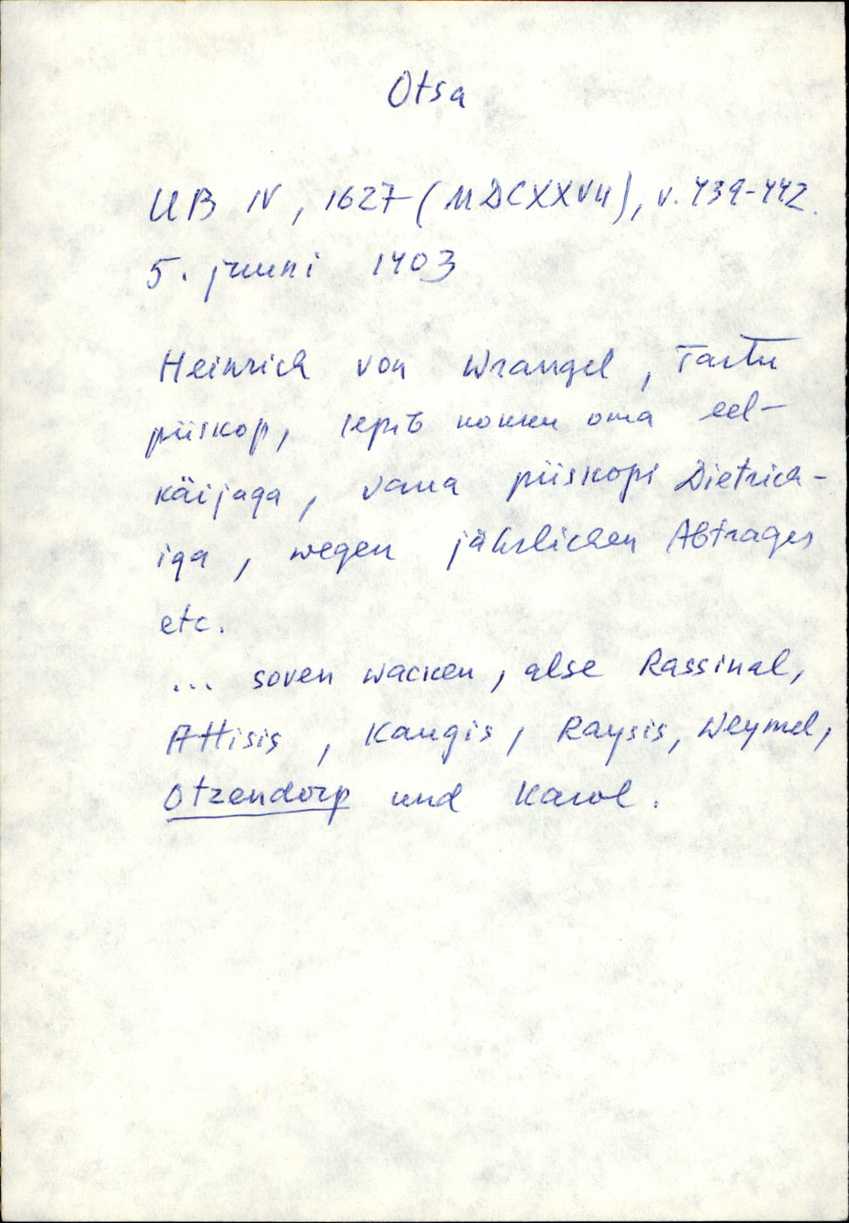 Otsa
UB IV, 1627 (MDCXXVII), v. 439-442.
5. juuni 1403
Heinrich von Wrangel, Tartu
piiskop, lepib kokku oma eel-
käijaga, vana piiskopi Dietrich-
iga, wegen jährlichen Abtrages
etc.
... soven wacken, alse Rassinal,
Attisis, Kaugis, Raysis, Weymel,
Otzendorp und Karol.